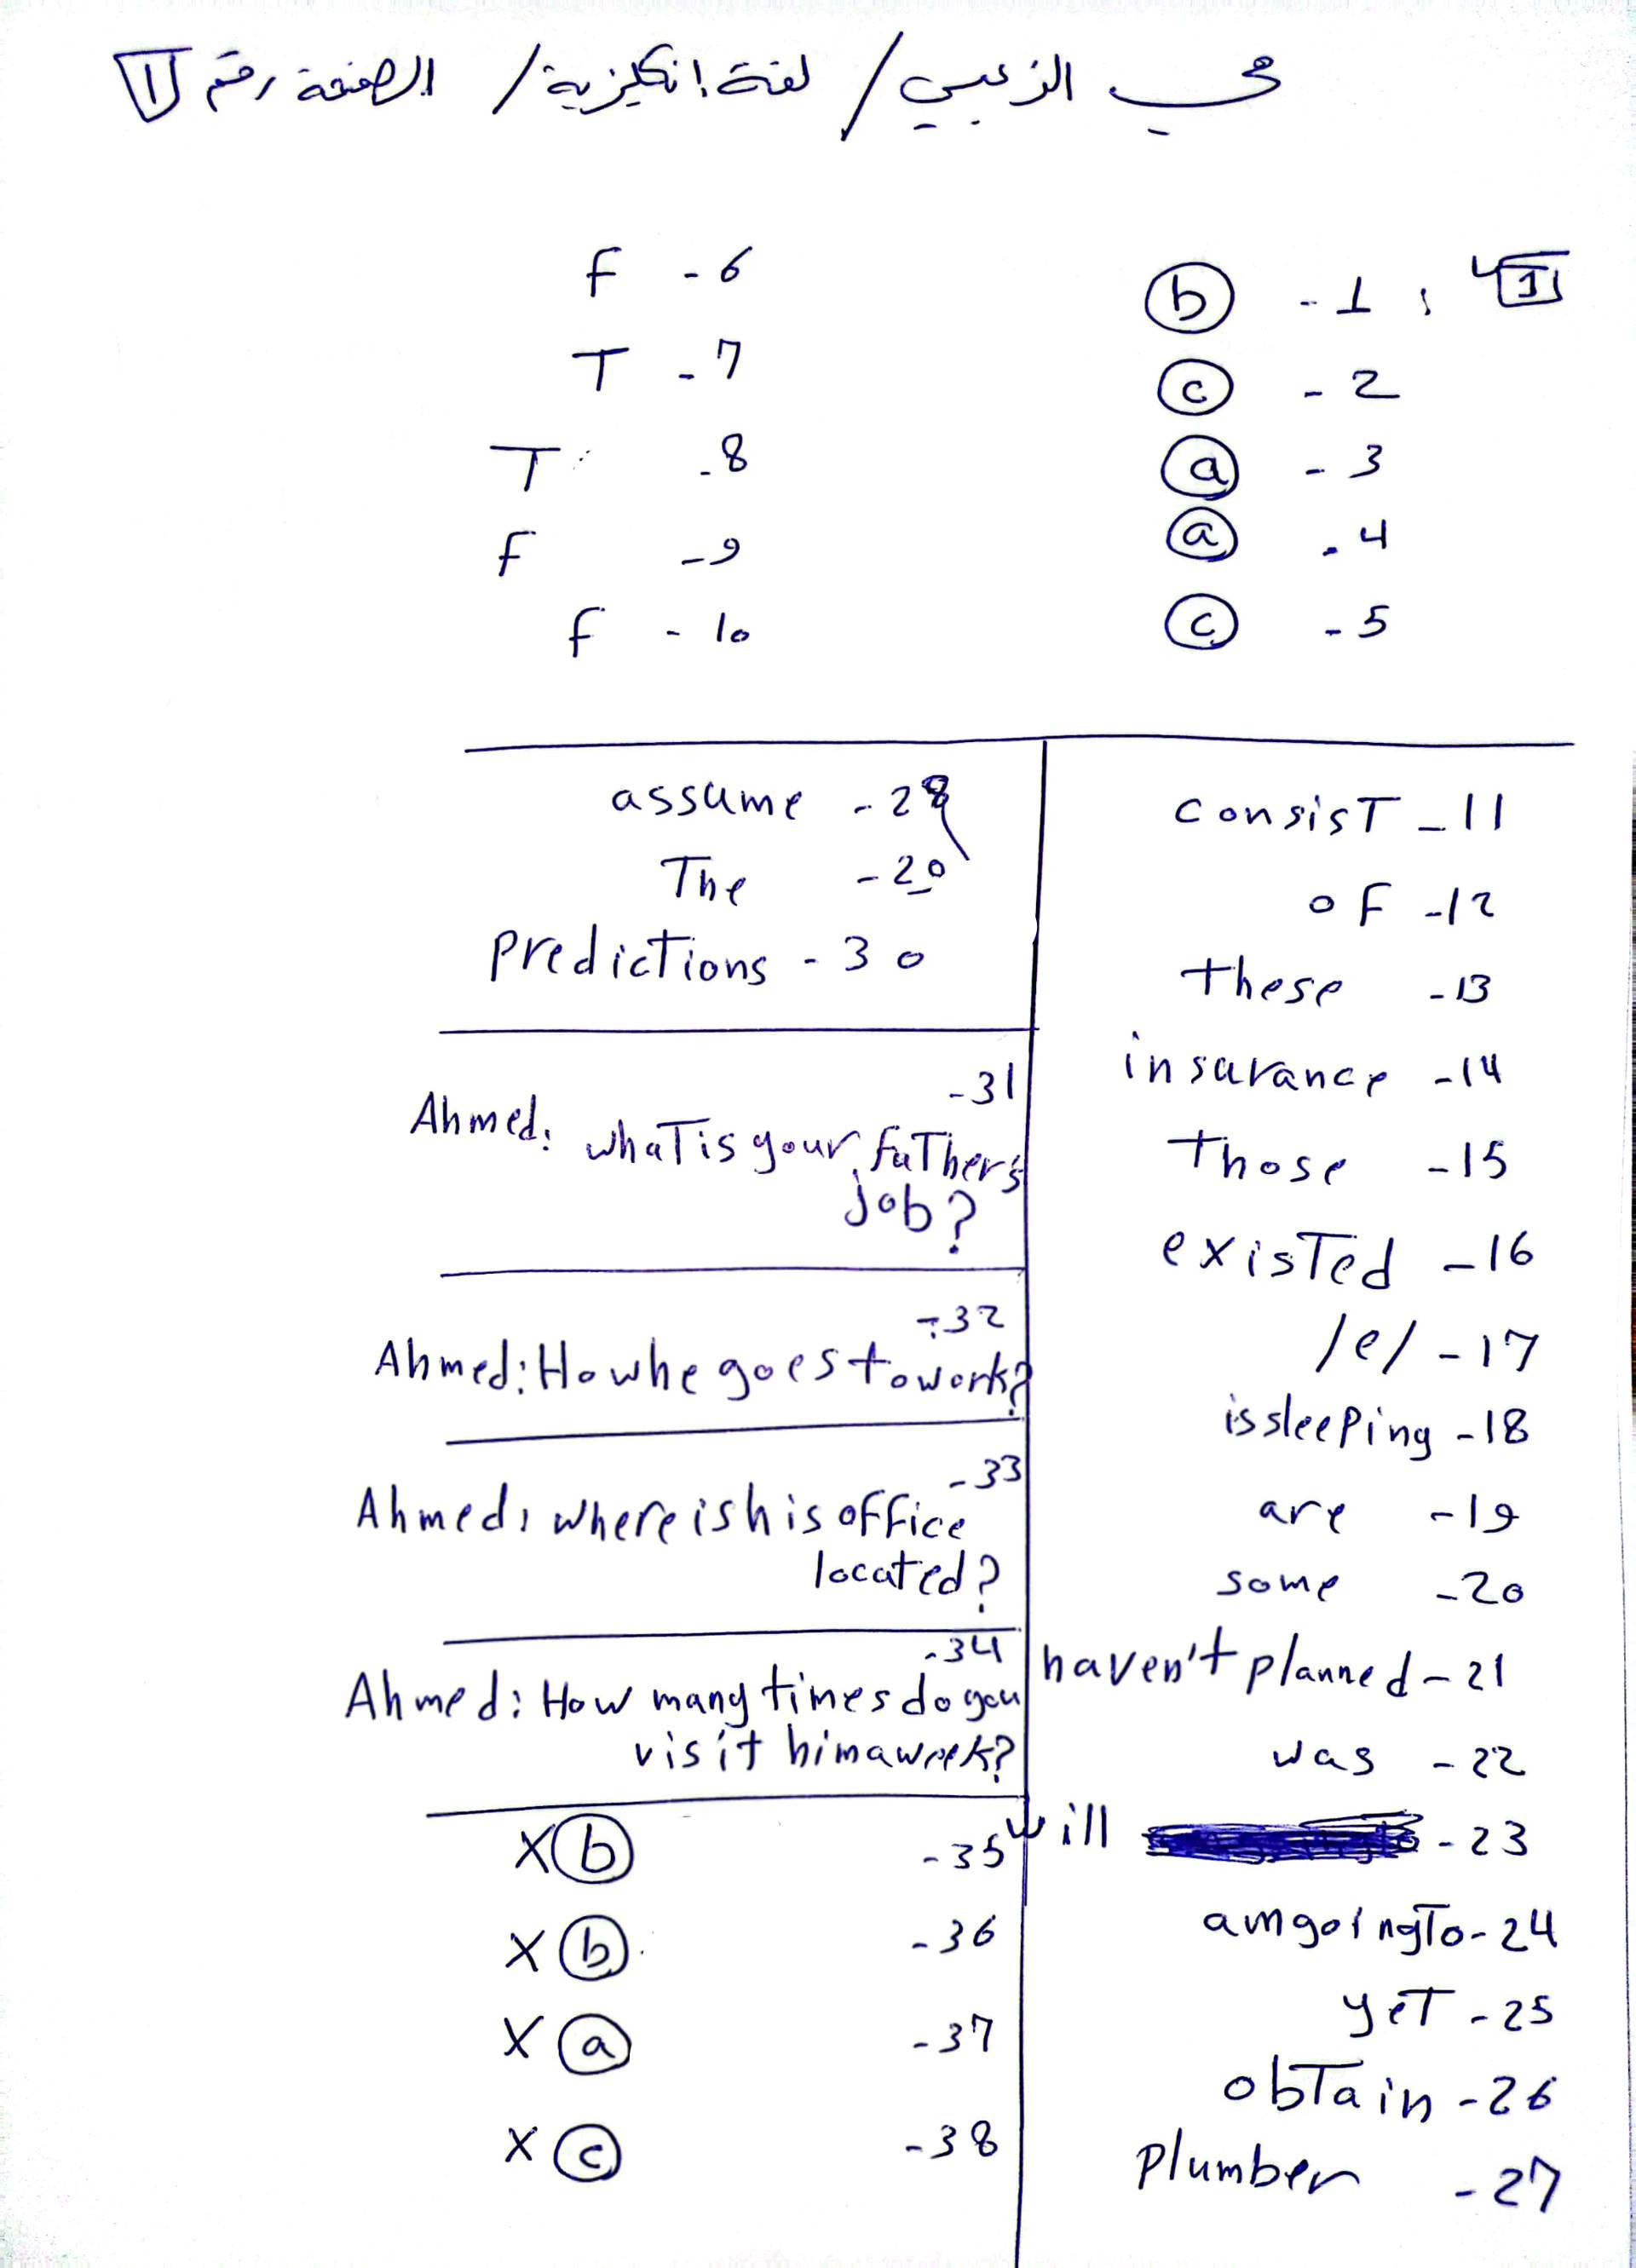 محي الزعبي / لغة إنكليزية / الصفحة رقم 1
1 : 1 - b
2 - c
3 - a
4 - a
5 - c
6 - F
7 - T
8 - T
9 - F
10 - F
11 - consist
12 - of
13 - these
14 - insurance
15 - those
16 - existed
17 - /e/
18 - is sleeping
19 - are
20 - some
21 - haven't planned
22 - was
23 - will
24 - am going to
25 - yet
26 - obtain
27 - Plumber
28 - assume
20 - The
30 - predictions
31 -
Ahmed: what is your father's
job?
32 -
Ahmed: How he goes to work?
33 -
Ahmed: where is his office
located?
34 -
Ahmed: How many times do you
visit him a week?
35 - b X
36 - b X
37 - a X
38 - c X